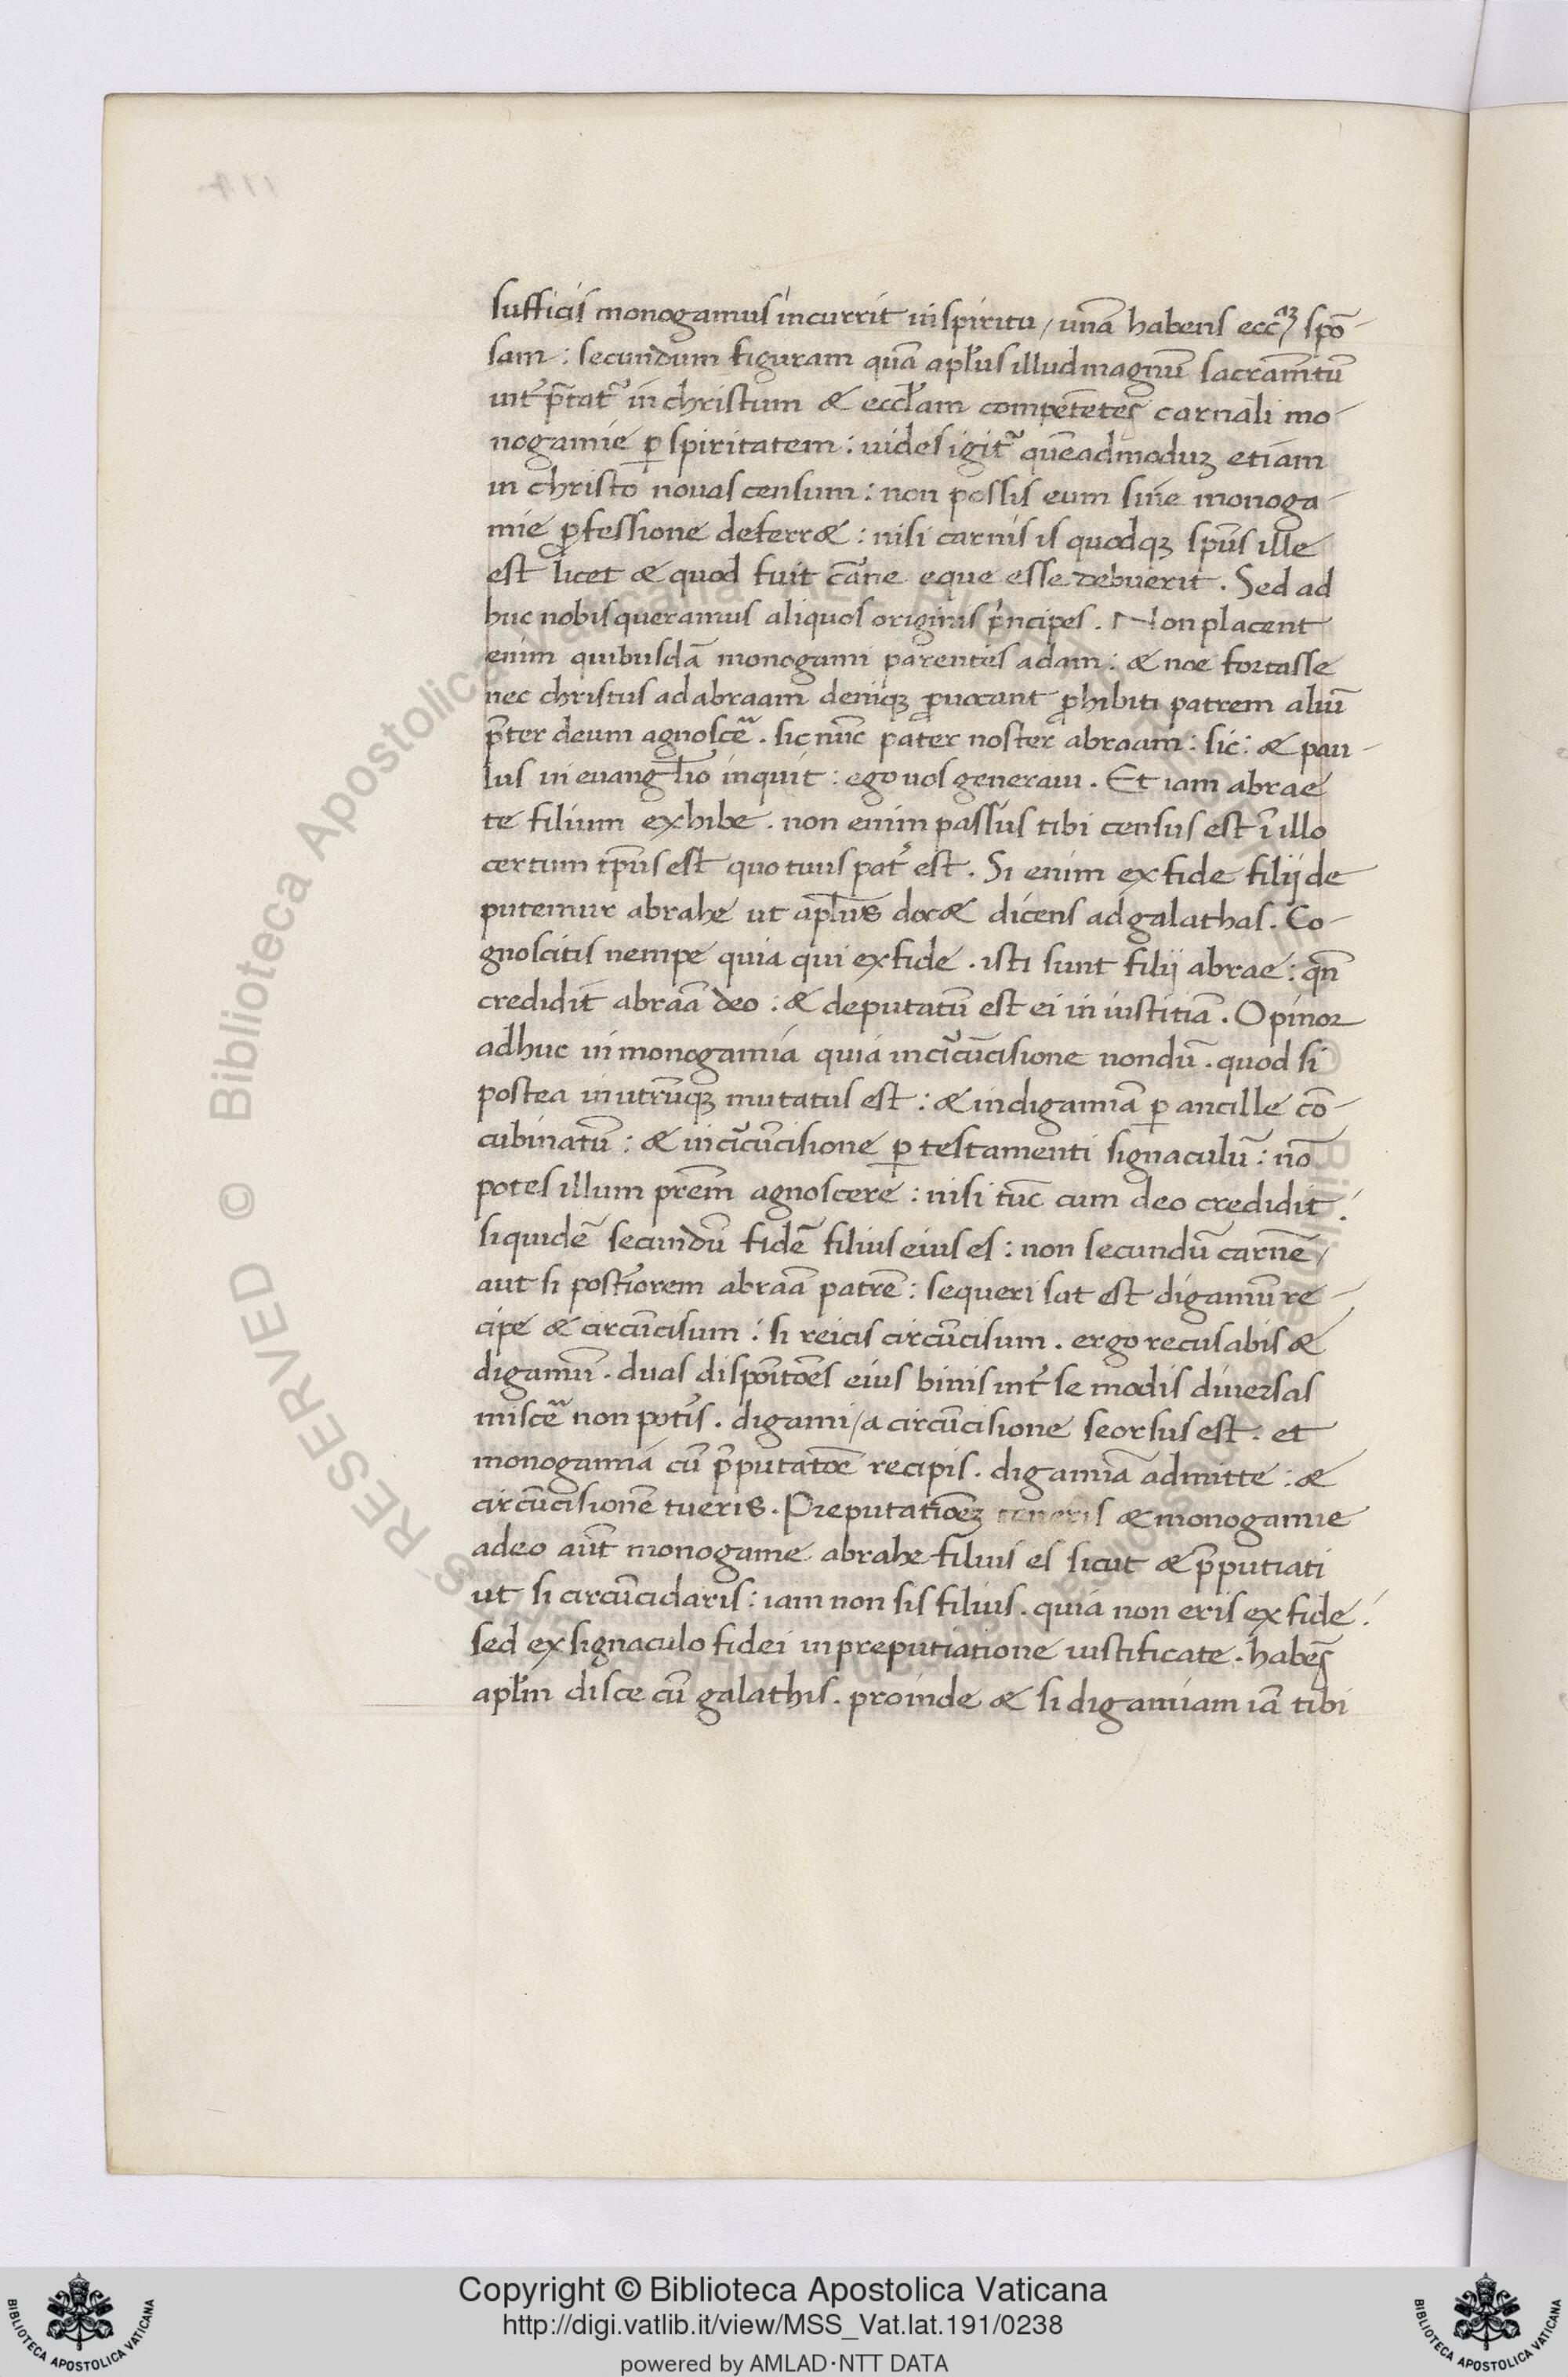 sufficis monogamus incurrit in spiritu / unā habens ecc̄aʒ spō-
sam : secundum figuram quā apl̄us illud magnū sacram̄tū
int̉p̄tat̉ in christum & eccl̄am competētes carnali mo-
nogamie p̱ spiritatem : uides igit̉ quēadmoduʒ etiam
in christo nouas censum : non possis eum sine monoga-
mie ꝓfessione deferr& : nisi carnis is quodqʒ sp̄us ille
est licet & quod fuit carne eque esse debuerit . Sed ad
huc nobis queramus aliquos originis p̉ncipes . Non placent
enim quibusdā monogami parentes adam : & noe fortasse
nec christus ad abraam deniqʒ ꝓuocant ꝓhibiti patrem aliū
p̄ter deum agnosceᷓ . sic nūc pater noster abraam : sic : & pau-
lus in euangl̄io inquit : ego uos generaui . Et iam abrae
te filium exhibe . non enim passus tibi census est ī illo
certum tp̄us est quo tuus pat̉ est . Si enim ex fide filij de
putemur abrahe ut apl̄us doc& dicens ad galathas . Co-
gnoscitis nempe quia qui ex fide . isti sunt filij abrae : qn̄
credidit abraā deo : & deputatū est ei in iustitiā . Opinor
adhuc in monogamia quia in cīcūcisione nondū . quod si
postea in utrūqʒ mutatus est : & in digamiā p̱ ancille cō-
cubinatū : & in cīcūcisione p̱ testamenti signaculū : nō
potes illum prēm agnoscere : nisi tūc cum deo credidit .
siquidē secundū fidē filius eius es : non secundū carnē /
aut si post̉iorem abraā patrē : sequeri sat est digamū re-
cipe & circūcisum : si reicis circūcisum . ergo recusabis &
digamū . duas disponītōes eius binis int̉ se modis diuersas
misceᷓ non pot̉is . digami / a circūcisione seorsus est . et
monogamia cū p̄putatōe recipis . digamiā admitte : &
circūcisionē tueris . Preputatiōeʒ teneris & monogamie
adeo aūt monogame abrahe filius es sicut & p̄putiati
ut si circūcidaris : iam non sis filius . quia non eris ex fide .
sed ex signaculo fidei in preputiatione iustificate . habes
apl̄m disce cū galathis . proinde & si digamiam iā tibi
Copyright © Biblioteca Apostolica Vaticana
http://digi.vatlib.it/view/MSS_Vat.lat.191/0238
powered by AMLAD·NTT DATA